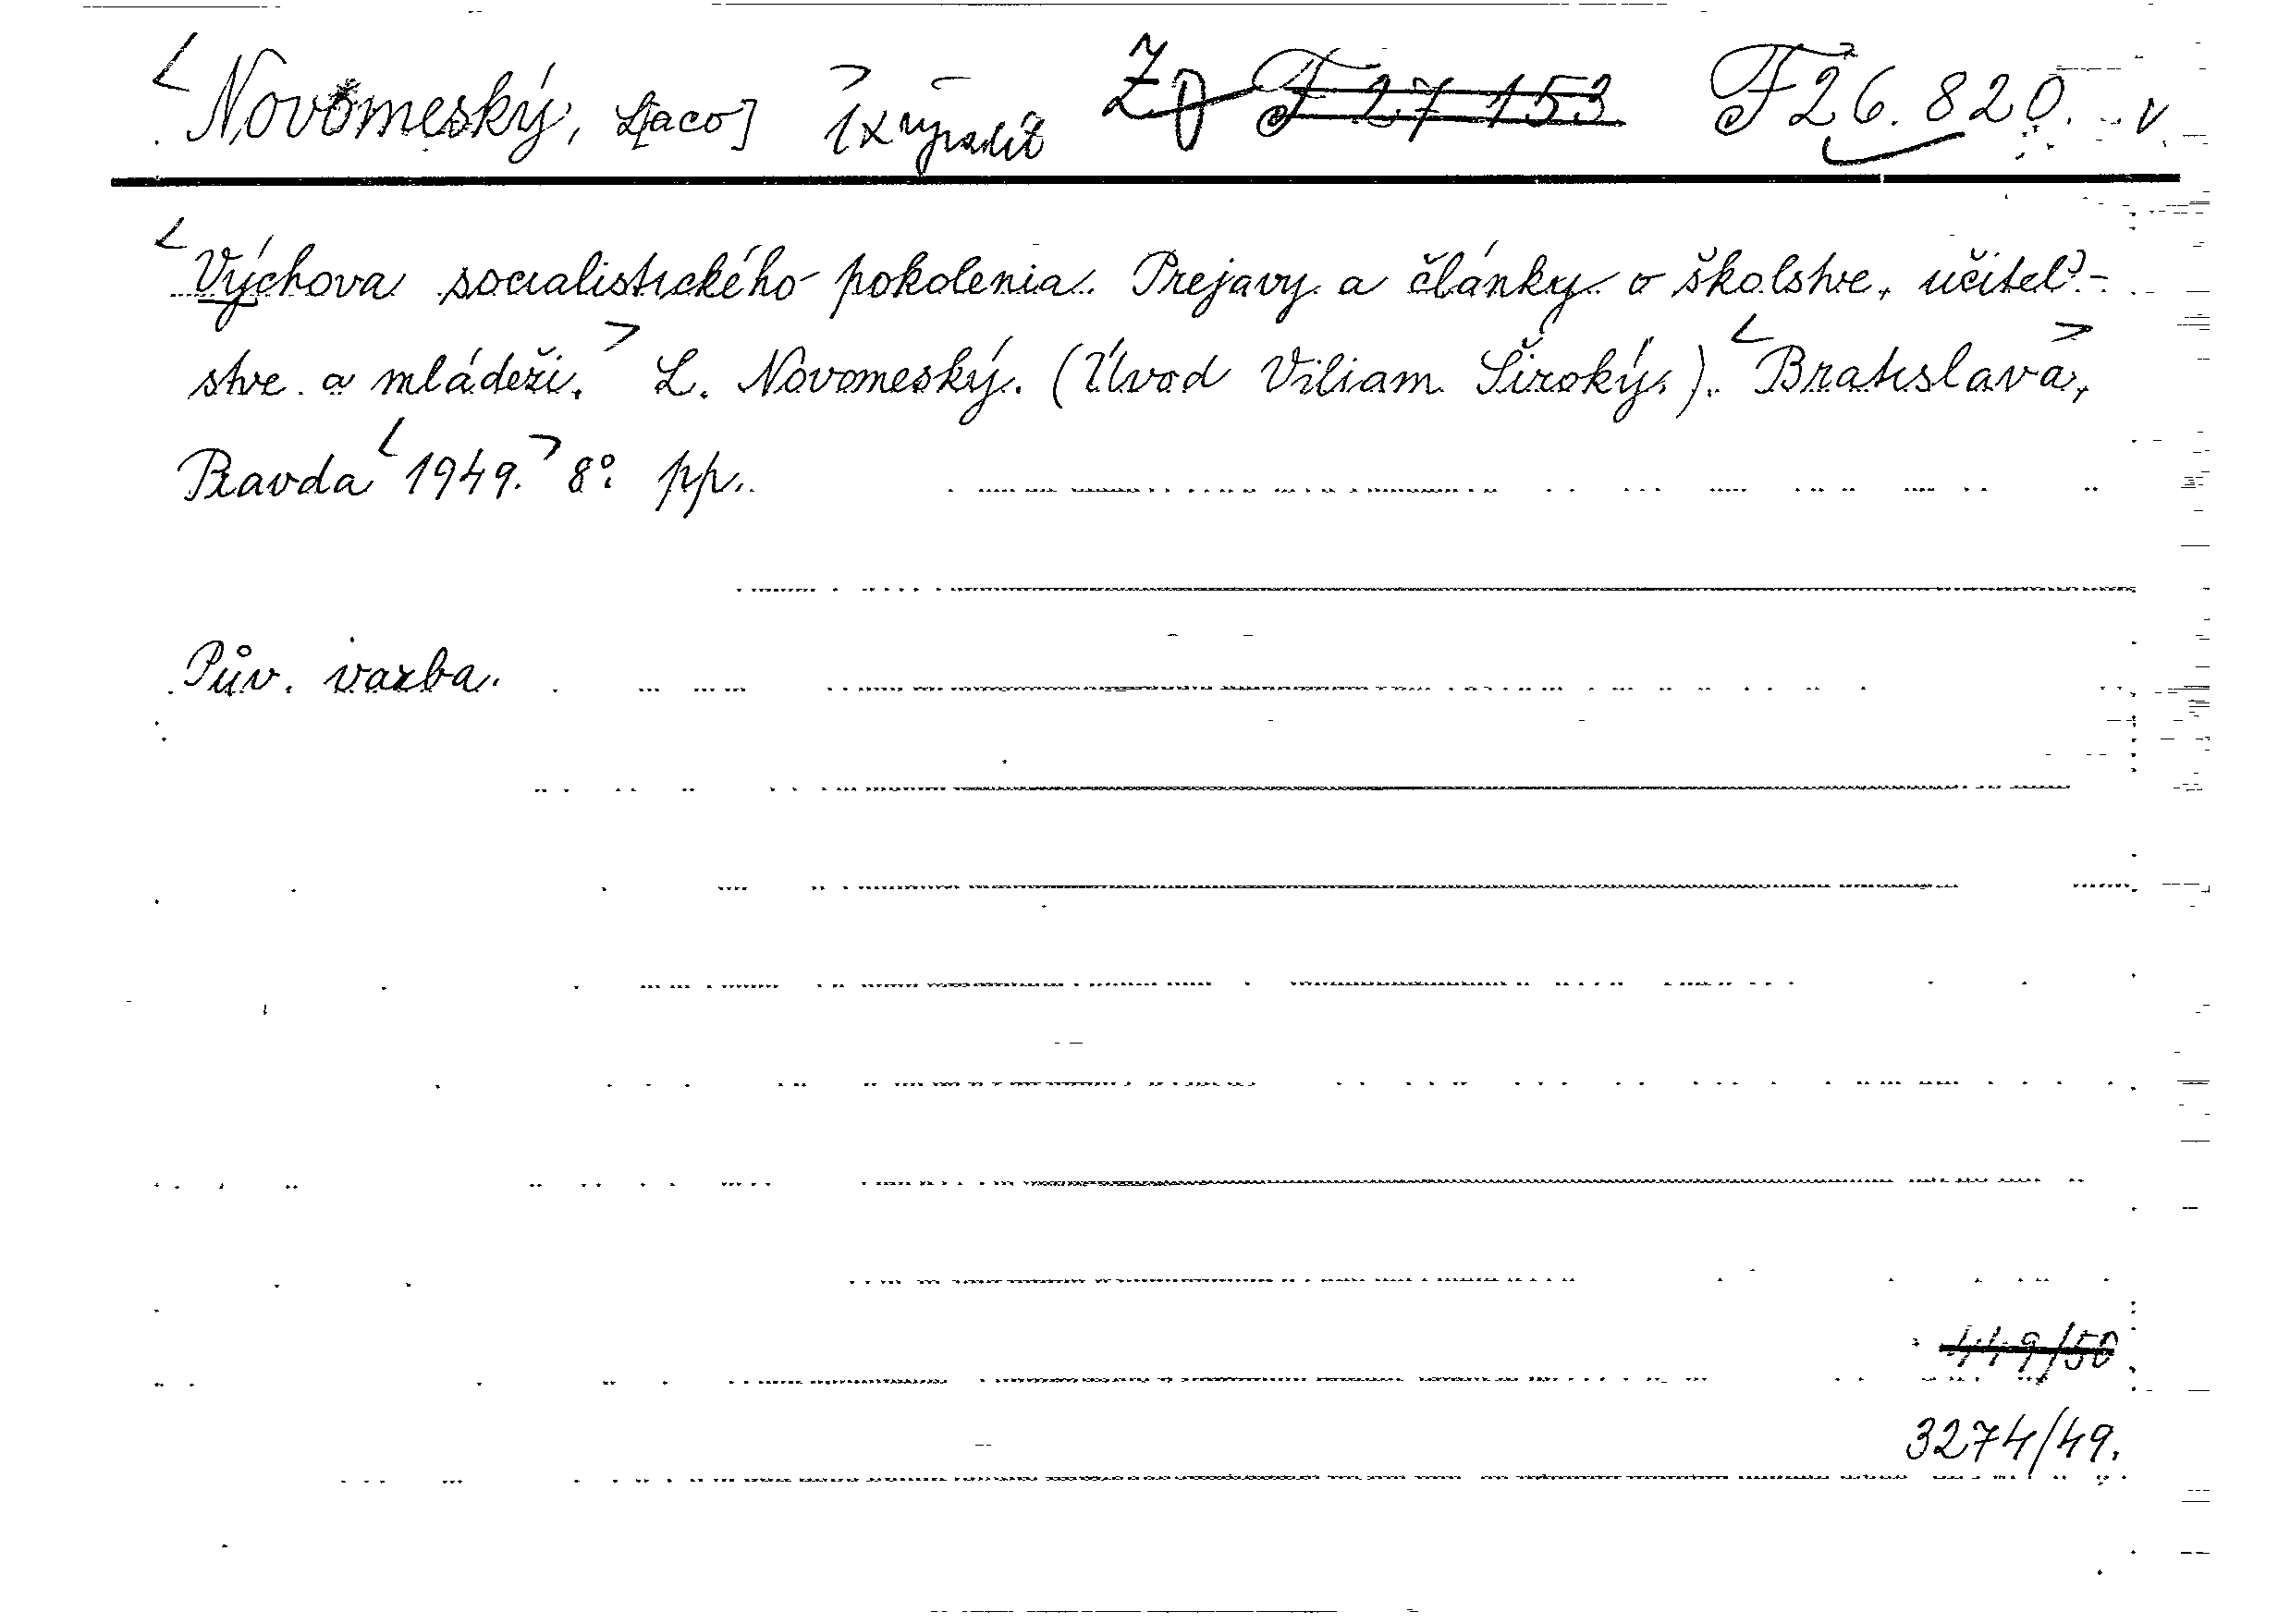 Novomeský, L[aco] 1x vyřadit F 27 153 F 26.820. v
Výchova socialistického pokolenia. Prejavy a články o školstve, učiteľ-
stve a mládeži. L. Novomeský. (Úvod Viliam Široký.). Bratislava,
Pravda 1949. 8°. pp.
Pův. vazba.
449/50
3274/49.